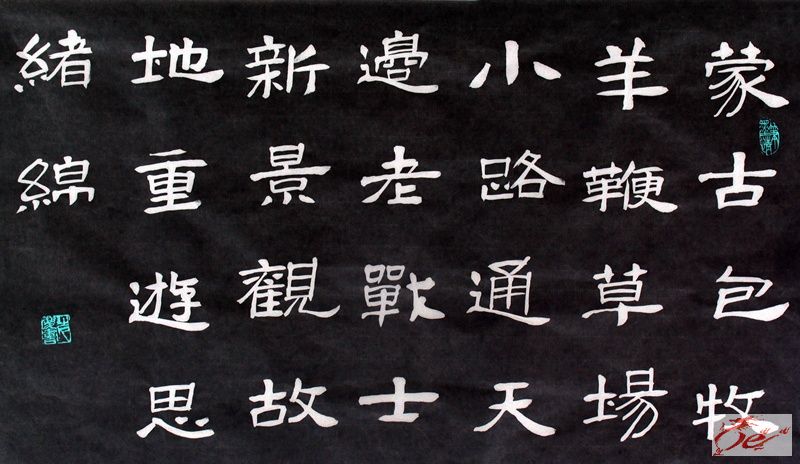 蒙古包牧
羊鞭草場
小路通天
邊老戰士
新景觀故
地重遊思
緒綿